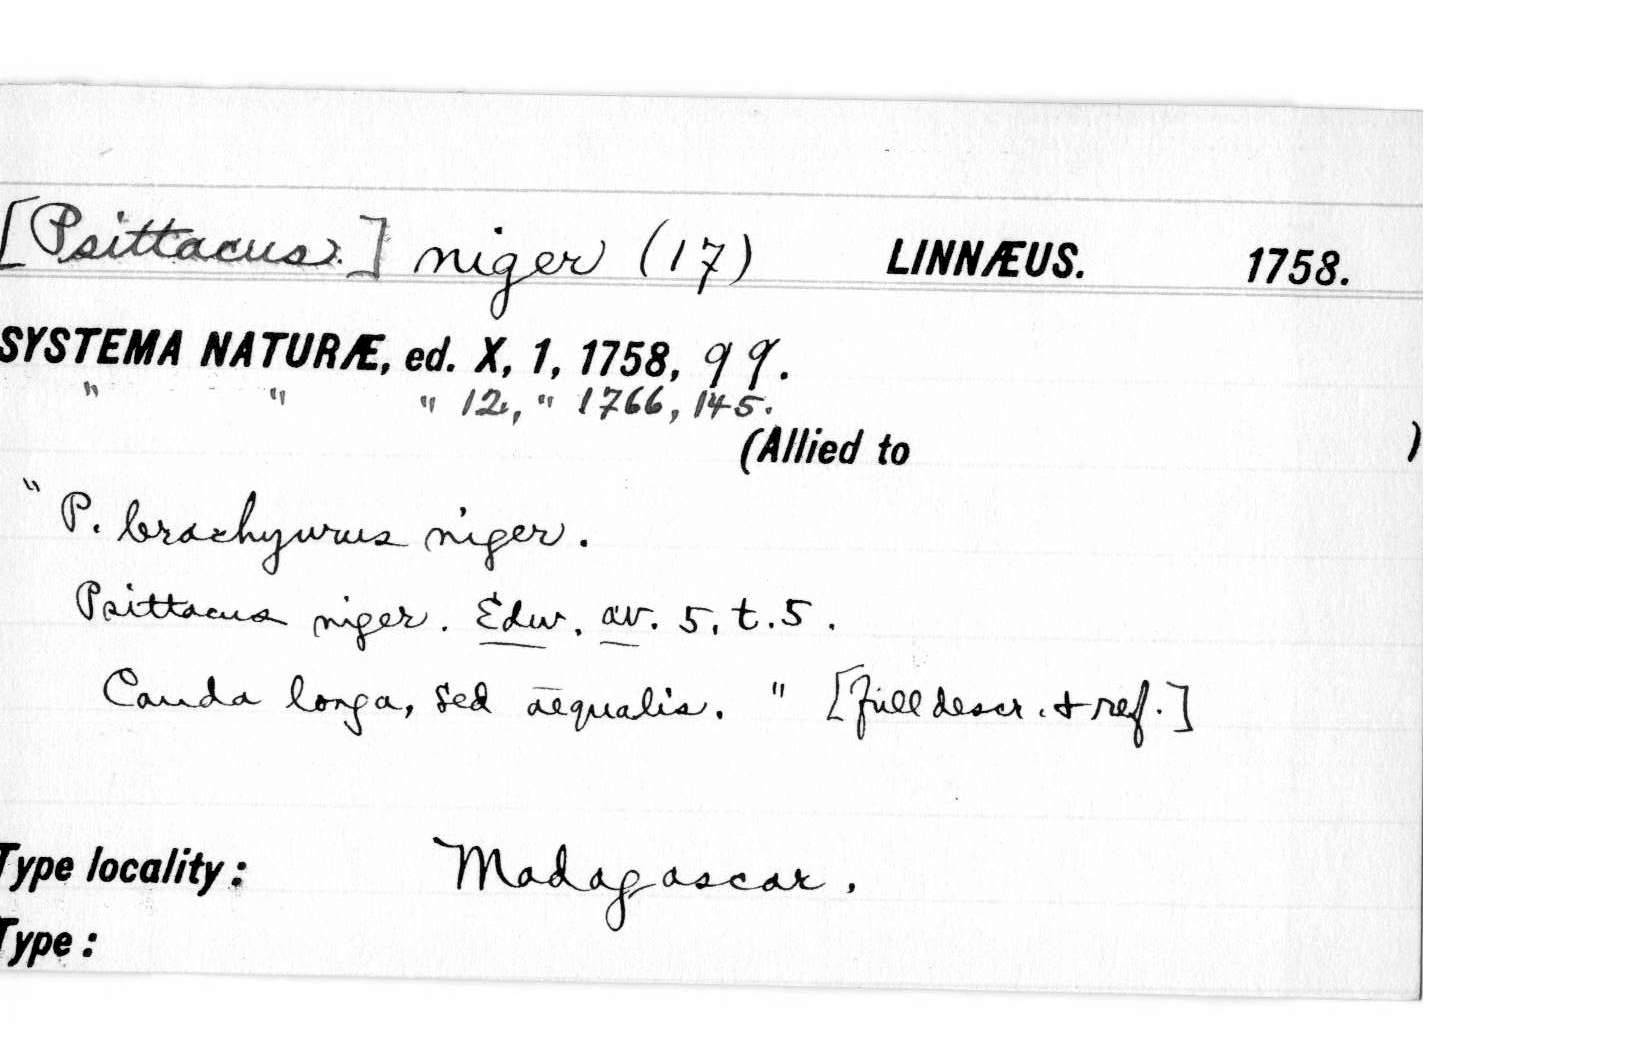 [Psittacus.] niger (17) LINNÆUS. 1758.
SYSTEMA NATURÆ, ed. X, 1, 1758, 99.
" " " 12, " 1766, 145.
(Allied to )
" P. brachyurus niger.
Psittacus niger. Edw. av. 5, t. 5.
Cauda longa, sed aequalis. " [full descr. & ref.]
Type locality: Madagascar.
Type: